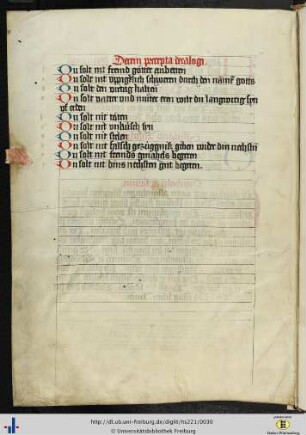 Decem precepta decalogi.
Du solt nit fremd götter anbetten
Du solt nit üppigklich schweren durch den namen gotts
Du solt den virtag halten
Du solt vatter und muter eren wilt du langwirig syn
uf erden
Du solt nit töten
Du solt nit unküsch syn
Du solt nit stelen
Du solt nit falsch gezüggnüß geben wider din nechsten
Du solt nit fremds gemahels begeren
Du solt nit dins nechsten gut begeren.
http://dl.ub.uni-freiburg.de/diglit/hs221/0030
© Universitätsbibliothek Freiburg